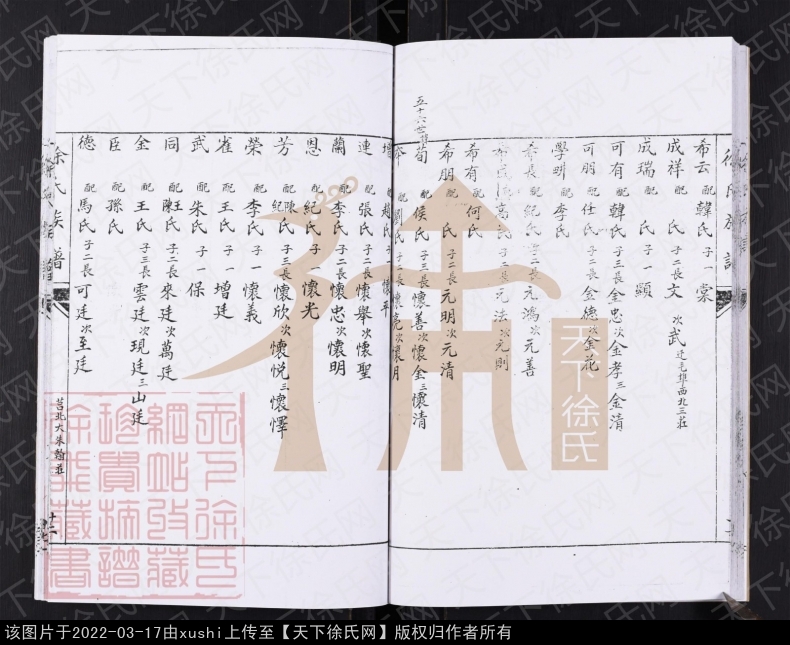 希云 配韓氏 子一 棠
成祥 配 氏 子二長文 次武 迁毛埠西北三莊
成瑞 配 氏 子一 顯
可有 配韓氏 子三長金忠 次金孝 三金清
可朋 配任氏 子二長金德 次金花
學畊 配李氏
希長 配紀氏 子二長元鴻 次元善
氏 子二長元法 次元則
希有 配何氏
希朋 配 氏 子二長元明 次元清
五十六世
荀 配侯氏 子三長懷善 次懷金 三懷清
配劉氏 子二長懷亮 次懷明
增 配趙氏 子一 懷平
連 配張氏 子二長懷舉 次懷聖
蘭 配李氏 子二長懷忠 次懷明
恩 配紀氏 子一 懷光
芳 配陳紀氏 子三長懷欣 次懷悦 三懷懌
榮 配李氏 子一 懷義
雀 配王氏 子一 增廷
武 配朱氏 子一 保
同 配王陳氏 子二長來廷 次萬廷
金 配王氏 子三長雲廷 次現廷 三山廷
臣 配孫氏
德 配馬氏 子二長可廷 次至廷
徐氏族譜
莒北大朱翰莊
天下徐氏
天下徐氏
網站收藏
珍貴摘譜
徐飛藏書
该图片于2022-03-17由xushi上传至【天下徐氏网】版权归作者所有